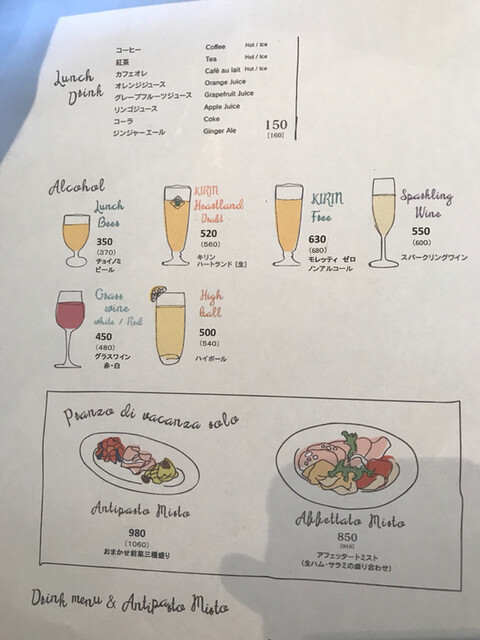 Lunch Drink
コーヒー Coffee Hot / Ice
紅茶 Tea Hot / Ice
カフェオレ Café au lait Hot / Ice
オレンジジュース Orange Juice
グレープフルーツジュース Grapefruit Juice
リンゴジュース Apple Juice
コーラ Coke
ジンジャーエール Ginger Ale
150
[160]
Alcohol
Lunch
Beer
350
(370)
チョイノミ
ビール
KIRIN
Heartland
Draft
520
(560)
キリン
ハートランド [生]
KIRIN
Free
630
(680)
モレッティ ゼロ
ノンアルコール
Sparkling
Wine
550
(600)
スパークリングワイン
Grass
wine
white / Red
450
(480)
グラスワイン
赤・白
High
Ball
500
(540)
ハイボール
Pranzo di vacanza solo
Antipasto Misto
980
(1060)
おまかせ前菜三種盛り
Abbettato Misto
850
アフェッタートミスト
(生ハム・サラミの盛り合わせ)
Drink menu & Antipasto Misto